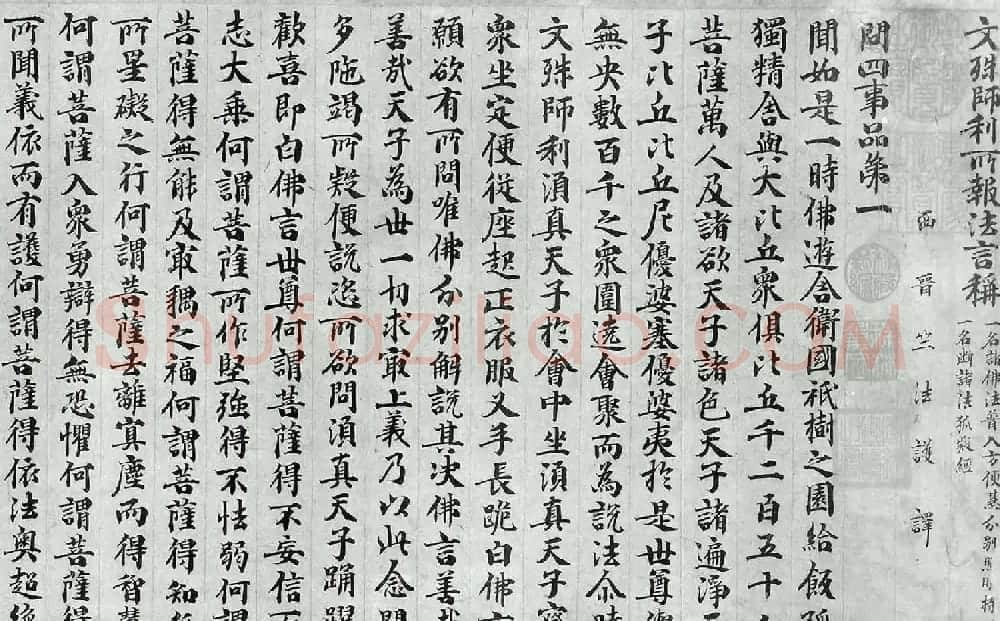 文殊師利所報法言稱
一名諸佛法普入方便慧分別照明持
一名断諸法狐疑經
西晉竺法護譯
問四事品第一
聞如是一時佛遊舍衛國祇樹之園給飯孤
獨精舍與大比丘衆俱比丘千二百五十
菩薩萬人及諸欲天子諸色天子諸遍淨天
子比丘比丘尼優婆塞優婆夷於是世尊與
無央數百千之衆圍遶會聚而為說法尒時
文殊師利湏真天子於會中坐湏真天子
衆坐定便從座起正衣服叉手長跪白佛
願欲有所問唯佛分別解說其决佛言善哉
善哉天子為世一切求冣上義乃以此念問
多陁竭所疑便說恣所欲問湏真天子踊躍
歡喜即白佛言世尊何謂菩薩得不妄信
志大乘何謂菩薩所作堅強得不怯弱何謂
菩薩得無能及冣耦之福何謂菩薩得知
所罣礙之行何謂菩薩去離冥塵而得智慧
何謂菩薩入衆勇辯得無恐懼何謂菩薩得
所聞義依而有護何謂菩薩得依法奥超絶
Shufaziliao.COM